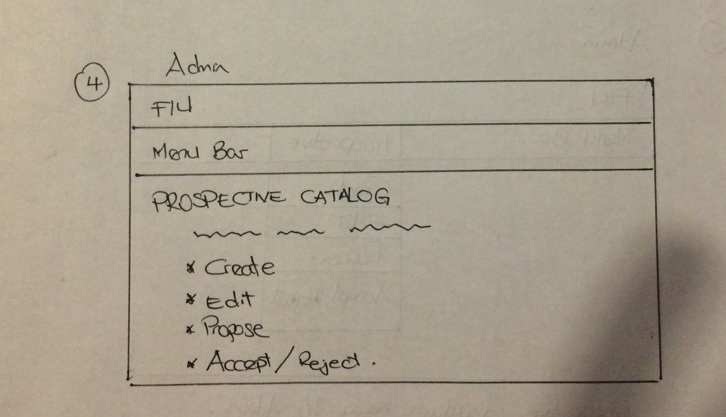 4
Admn
FIU
Menu Bar
PROSPECTIVE CATALOG
* Create
* Edit
* Propose
* Accept / Reject.